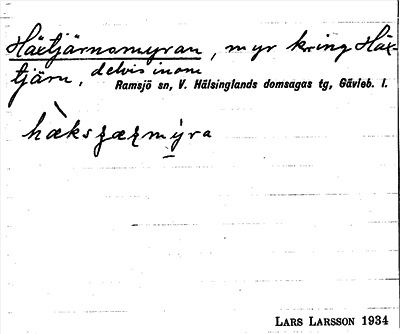 Häxtjärnsmyran, myr kring Häx-
tjärn, delvis inom
Ramsjö sn, V. Hälsinglands domsagas tg, Gävleb. l.
LARS LARSSON 1934